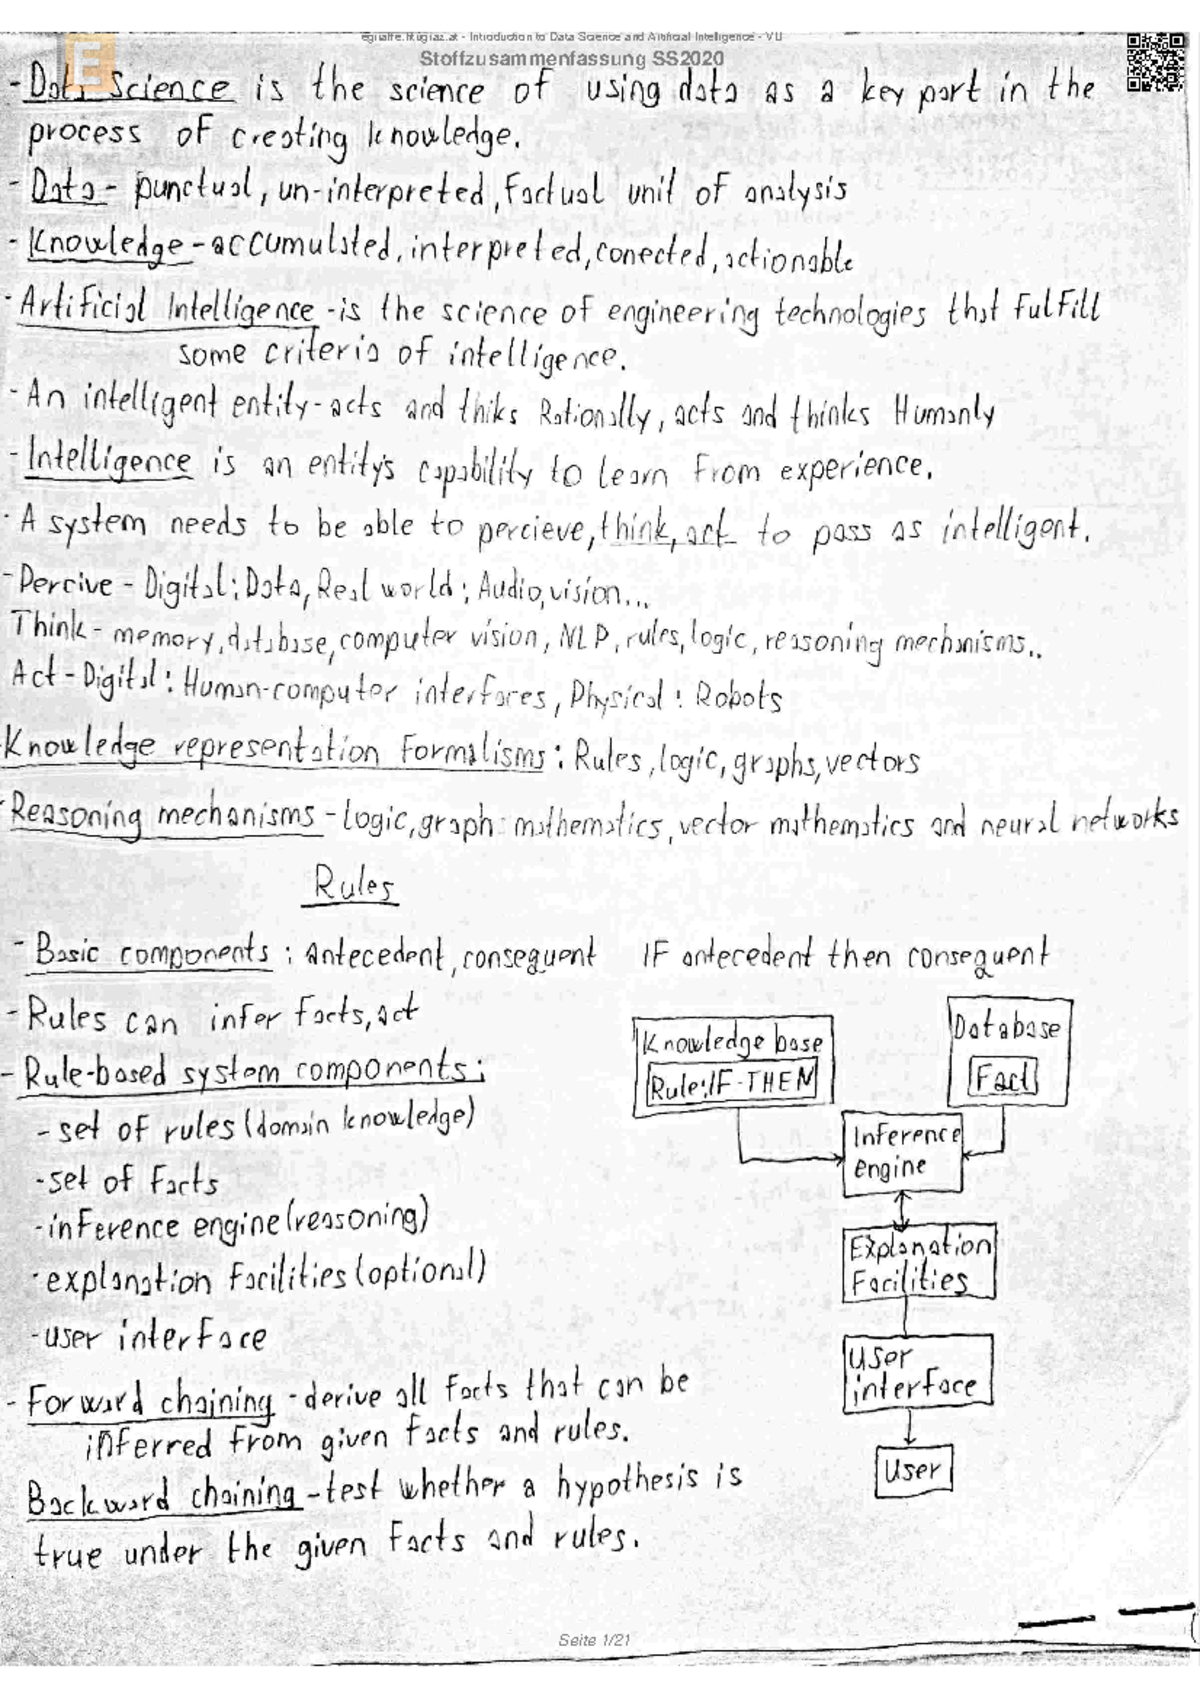 egiraffe.htugraz.at - Introduction to Data Science and Artificial Intelligence - VU
Stoffzusammenfassung SS2020
E
- Data Science is the science of using data as a key part in the
process of creating knowledge.
- Data - punctual, un-interpreted, Factual unit of analysis
- Knowledge - accumulated, interpreted, conected, actionable
- Artificial Intelligence - is the science of engineering technologies that fulfill
some criteria of intelligence.
- An intelligent entity - acts and thiks Rationally, acts and thinks Humanly
- Intelligence is an entity's capability to learn from experience.
- A system needs to be able to percieve, think, act to pass as intelligent.
- Percive - Digital: Data, Real world: Audio, vision...
Think - memory, database, computer vision, NLP, rules, logic, reasoning mechanisms..
Act - Digital: Human-computer interfaces, Physical: Robots
Knowledge representation Formalisms: Rules, logic, graphs, vectors
- Reasoning mechanisms - Logic, graph mathematics, vector mathematics and neural networks
Rules
- Basic components: antecedent, consequent IF antecedent then consequent
- Rules can infer facts, act
- Rule-based system components:
- set of rules (domain knowledge)
- set of facts
- inference engine (reasoning)
- explanation facilities (optional)
- user interface
- Forward chaining - derive all facts that can be
inferred from given facts and rules.
Backward chaining - test whether a hypothesis is
true under the given facts and rules.
Knowledge base
Rule: IF-THEN
Database
Fact
Inference
engine
Explanation
Facilities
User
interface
User
Seite 1/21